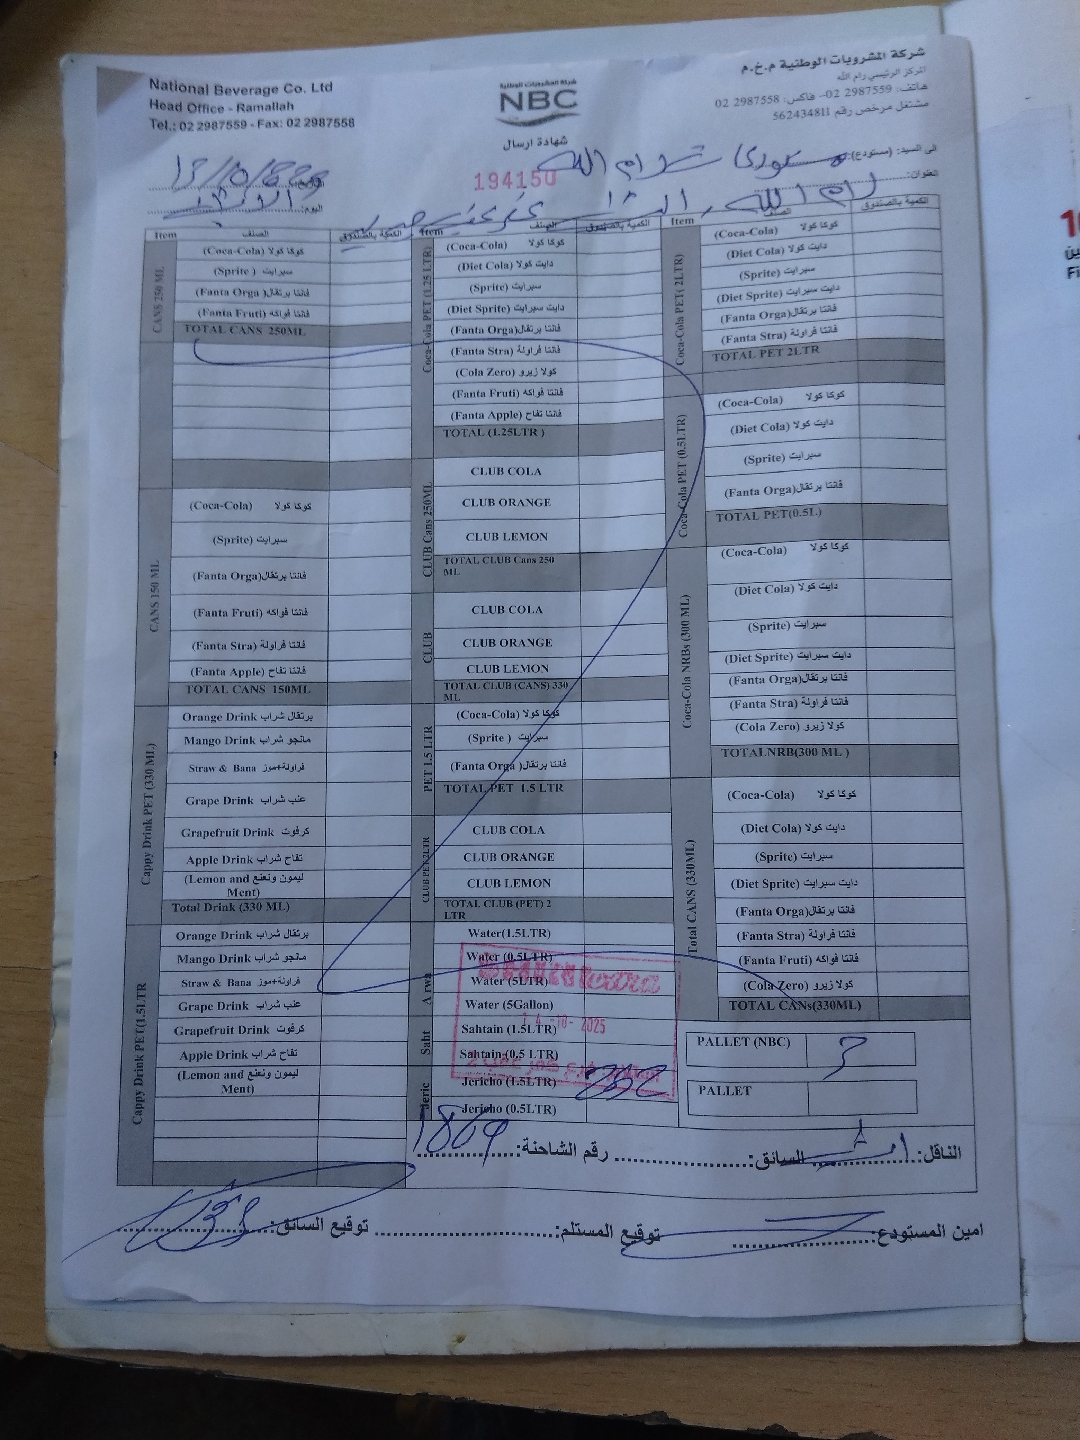 National Beverage Co. Ltd
Head Office - Ramallah
Tel.: 02 2987559 - Fax: 02 2987558
شركة المشروبات الوطنية
NBC
شركة المشروبات الوطنية م.خ.م
المركز الرئيسي رام الله
هاتف: 2987559 02- فاكس: 2987558 02
مشتغل مرخص رقم 562434811
شهادة ارسال
194150
الى السيد: (مستودع): رام الله
العنوان: رام الله
13/10/
اليوم: الاثنين
Item الصنف الكمية بالصندوق
CANS 250 ML
(Coca-Cola) كوكا كولا
(Sprite ) سبرايت
(Fanta Orga )فانتا برتقال
(Fanta Fruti) فانتا فواكه
TOTAL CANS 250ML
CANS 150 ML
(Coca-Cola) كوكا كولا
(Sprite) سبرايت
(Fanta Orga)فانتا برتقال
(Fanta Fruti) فانتا فواكه
(Fanta Stra) فانتا فراولة
(Fanta Apple) فانتا تفاح
TOTAL CANS 150ML
Cappy Drink PET (330 ML)
Orange Drink برتقال شراب
Mango Drink مانجو شراب
Straw & Bana فراولة+موز
Grape Drink عنب شراب
Grapefruit Drink كرفوت
Apple Drink تفاح شراب
(Lemon and ليمون ونعنع
Ment)
Total Drink (330 ML)
Cappy Drink PET(1.5LTR
Orange Drink برتقال شراب
Mango Drink مانجو شراب
Straw & Bana فراولة+موز
Grape Drink عنب شراب
Grapefruit Drink كرفوت
Apple Drink تفاح شراب
(Lemon and ليمون ونعنع
Ment)
Item الصنف الكمية بالصندوق
Coca-Cola PET (1.25 LTR)
(Coca-Cola) كوكا كولا
(Diet Cola) دايت كولا
(Sprite) سبرايت
(Diet Sprite) دايت سبرايت
(Fanta Orga)فانتا برتقال
(Fanta Stra) فانتا فراولة
(Cola Zero) كولا زيرو
(Fanta Fruti) فانتا فواكه
(Fanta Apple) فانتا تفاح
TOTAL (1.25LTR )
CLUB Cans 250ML
CLUB COLA
CLUB ORANGE
CLUB LEMON
TOTAL CLUB Cans 250
ML
CLUB
CLUB COLA
CLUB ORANGE
CLUB LEMON
TOTAL CLUB (CANS) 330
ML
PET 1.5 LTR
(Coca-Cola) كوكا كولا
(Sprite ) سبرايت
(Fanta Orga )فانتا برتقال
TOTAL PET 1.5 LTR
CLUB PET 2LTR
CLUB COLA
CLUB ORANGE
CLUB LEMON
TOTAL CLUB (PET) 2
LTR
Arwa
Water(1.5LTR)
Water (0.5LTR)
Water (5LTR)
Water (5Gallon)
Saht
Sahtain (1.5LTR)
Sahtain (0.5 LTR)
Jeric
Jericho (1.5LTR)
Jericho (0.5LTR)
Item الصنف الكمية بالصندوق
Coca-Cola PET( 2LTR)
(Coca-Cola) كوكا كولا
(Diet Cola) دايت كولا
(Sprite) سبرايت
(Diet Sprite) دايت سبرايت
(Fanta Orga)فانتا برتقال
(Fanta Stra) فانتا فراولة
TOTAL PET 2LTR
Coca-Cola PET (0.5LTR)
(Coca-Cola) كوكا كولا
(Diet Cola) دايت كولا
(Sprite) سبرايت
(Fanta Orga)فانتا برتقال
TOTAL PET(0.5L)
Coca-Cola NRBs (300 ML)
(Coca-Cola) كوكا كولا
(Diet Cola) دايت كولا
(Sprite) سبرايت
(Diet Sprite) دايت سبرايت
(Fanta Orga)فانتا برتقال
(Fanta Stra) فانتا فراولة
(Cola Zero) كولا زيرو
TOTALNRB(300 ML )
Total CANS (330ML)
(Coca-Cola) كوكا كولا
(Diet Cola) دايت كولا
(Sprite) سبرايت
(Diet Sprite) دايت سبرايت
(Fanta Orga)فانتا برتقال
(Fanta Stra) فانتا فراولة
(Fanta Fruti) فانتا فواكه
(Cola Zero) كولا زيرو
TOTAL CANs(330ML)
-10- 2025
PALLET (NBC) 3
PALLET
الناقل: السائق: رقم الشاحنة: 1869
امين المستودع: توقيع المستلم: توقيع السائق: